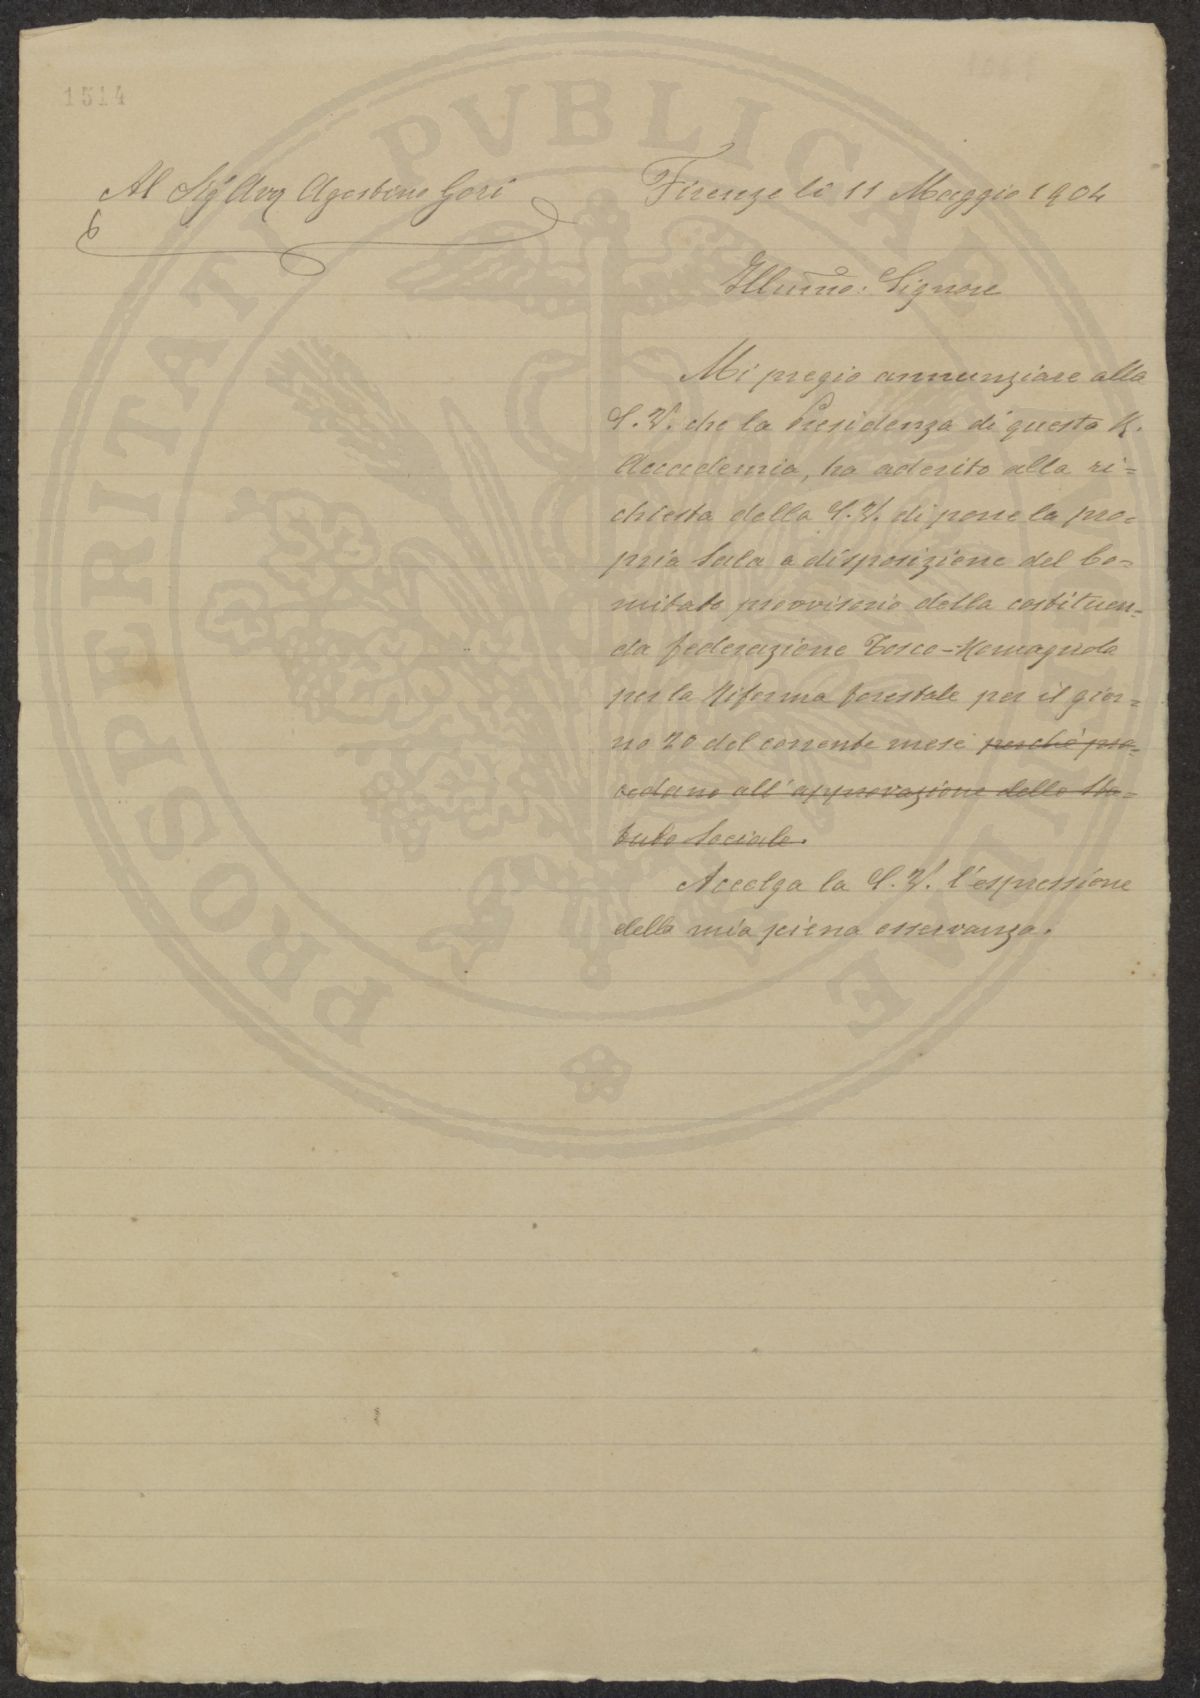 1514
Al Sigr Avv Agostino Gori
Firenze li 11 Maggio 1904
Illumo: Signore
Mi pregio annunziare alla
S. V. che la Presidenza di questa R.
Accademia, ha aderito alla ri=
chiesta della S. V. di porre la pro=
pria Sala a disposizione del Co=
mitato provvisorio della costituen=
da federazione Tosco-Romagnola
per la Riforma forestale per il gior=
no 20 del corrente mese perché pro=
cedano all'approvazione dello Sta=
tuto Sociale.
Accolga la S. V. l'espressione
della mia piena osservanza.
PROSPERITATI PVBLICAE AVGENDAE